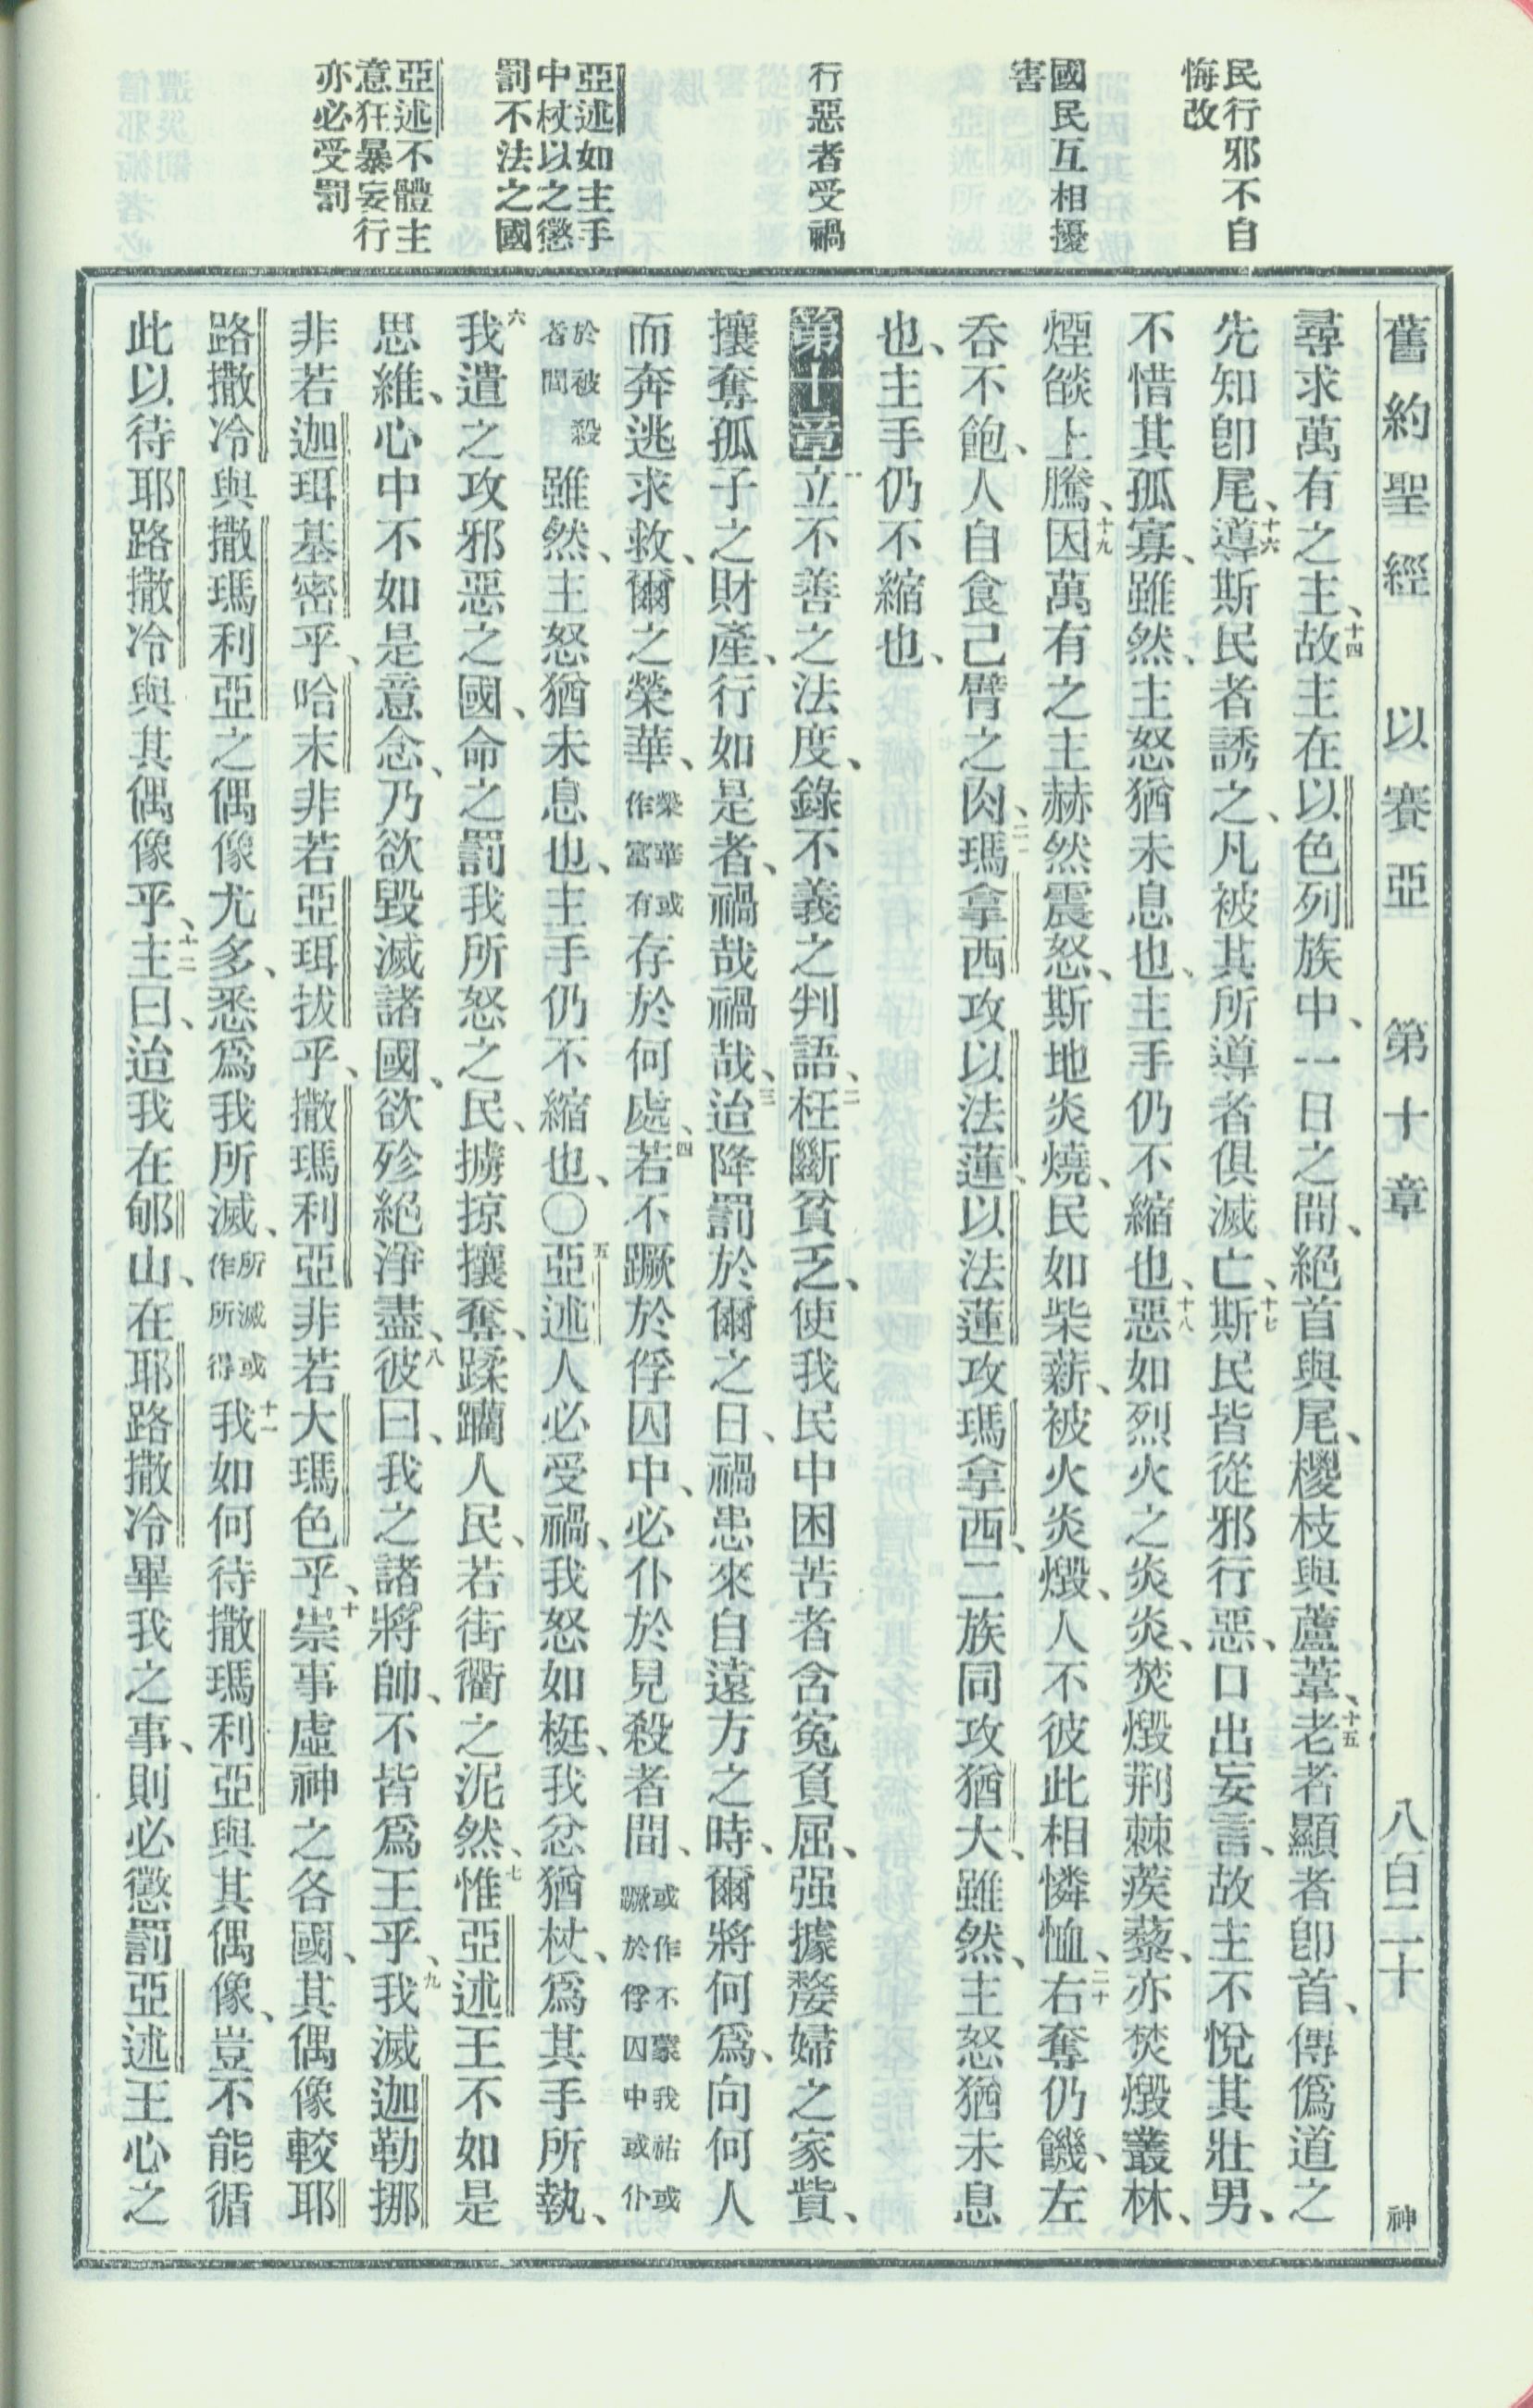 舊約聖經 以賽亞 第十章 八百二十 神
民行邪不自
悔改
國民互相擾
害
行惡者受禍
亞述如主手
中杖以之懲
罰不法之國
亞述不體主
意狂暴妄行
亦必受罰
尋求萬有之主、十四故主在以色列族中、一日之間、絕首與尾、椶枝與蘆葦、十五老者顯者卽首、傳僞道之
先知卽尾、十六導斯民者誘之、凡被其所導者俱滅亡、十七斯民皆從邪行惡、口出妄言、故主不悅其壯男、
不惜其孤寡、雖然、主怒猶未息也、主手仍不縮也、十八惡如烈火之炎炎、焚燬荆棘蒺藜、亦焚燬叢林、
煙燄上騰、十九因萬有之主赫然震怒、斯地炎燒、民如柴薪、被火炎燬、人不彼此相憐恤、二十右奪仍饑、左
吞不飽、人自食己臂之肉、二一瑪拿西攻以法蓮、以法蓮攻瑪拿西、二族同攻猶大、雖然、主怒猶未息
也、主手仍不縮也、
第十章 一立不善之法度、錄不義之判語、二枉斷貧乏、使我民中困苦者含寃負屈、强據嫠婦之家貲、
攘奪孤子之財產、行如是者、禍哉禍哉、三迨降罰於爾之日、禍患來自遠方之時、爾將何爲、向何人
而奔逃求救、爾之榮華、榮華或作富有存於何處、四若不蹶於俘囚中、必仆於見殺者間、或作不蒙我祐或蹶於俘囚中或仆
於被殺者間雖然、主怒猶未息也、主手仍不縮也、〇五亞述人必受禍、我怒如梃、我忿猶杖、爲其手所執、
六我遣之攻邪惡之國、命之罰我所怒之民、擄掠攘奪、蹂躪人民、若街衢之泥然、七惟亞述王不如是
思維、心中不如是意念、乃欲毀滅諸國、欲殄絕淨盡、八彼曰、我之諸將帥、不皆爲王乎、九我滅迦勒挪
非若迦珥基密乎、哈末非若亞珥拔乎、撒瑪利亞非若大瑪色乎、十崇事虛神之各國、其偶像較耶
路撒冷與撒瑪利亞之偶像尤多、悉爲我所滅、所滅或作所得十一我如何待撒瑪利亞與其偶像、豈不能循
此以待耶路撒冷與其偶像乎、十二主曰、迨我在郇山、在耶路撒冷畢我之事、則必懲罰亞述王心之